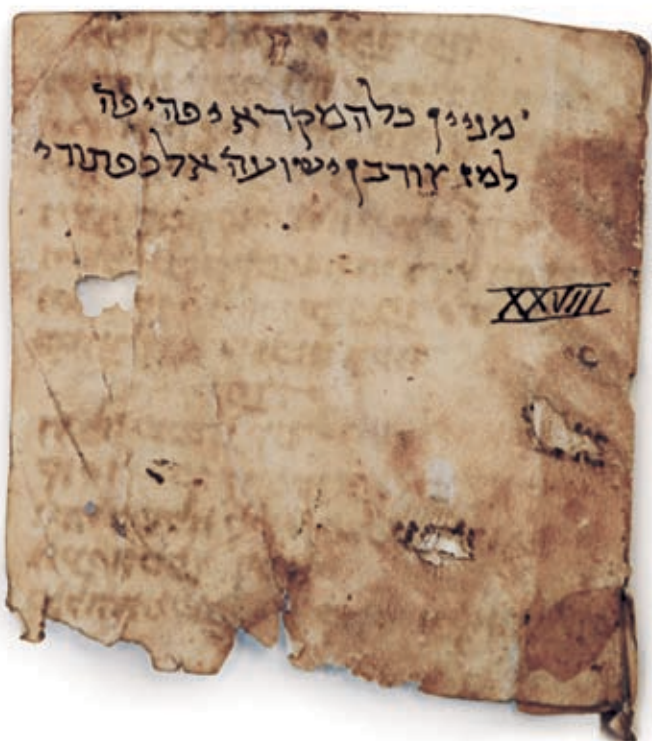 מניין כל המקרא יפה יפה
למזעור בן ישועה אלכפתורי
XXVIII